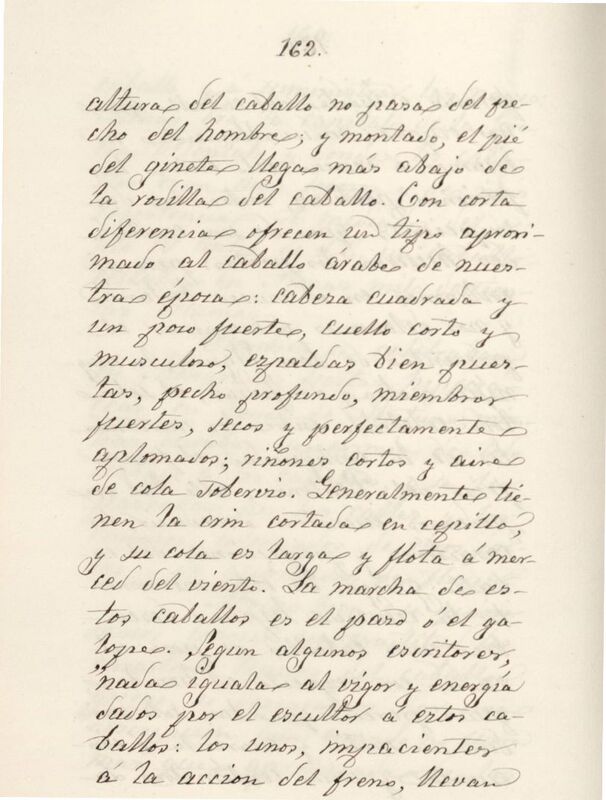 162.
altura del caballo no pasa del pe-
cho del hombre; y montado, el pié
del ginete llega más abajo de
la rodilla del caballo. Con corta
diferencia ofrecen un tipo aproxi-
mado al caballo árabe de nues-
tra época: cabeza cuadrada y
un poco fuerte, cuello corto y
musculoso, espaldas bien pues-
tas, pecho profundo, miembros
fuertes, secos y perfectamente
aplomados; riñones cortos y aire
de cola sobervio. Generalmente tie-
nen la crin cortada en cepillo,
y su cola es larga y flota á mer-
ced del viento. La marcha de es-
tos caballos es el paso ó el ga-
lope. Segun algunos escritores,
"nada iguala al vigor y energía
dados por el escultor a estos ca-
ballos: los unos, impacientes
á la accion del freno, llevan